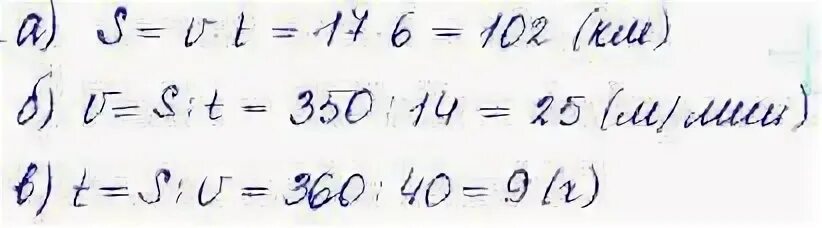 а) S = v t = 17 6 = 102 (км)
б) v = S : t = 350 : 14 = 25 (м/мин)
в) t = S : v = 360 : 40 = 9 (ч)